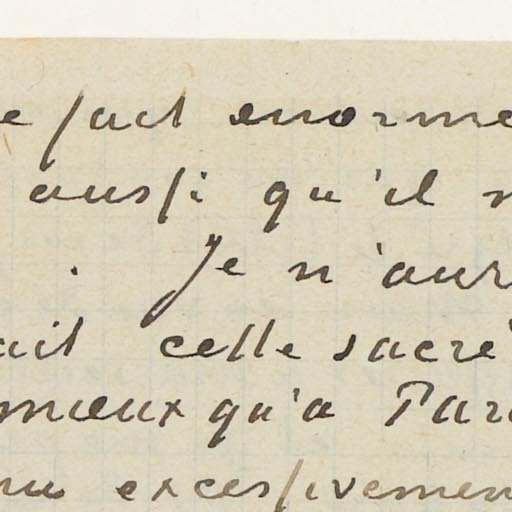 e fait enorme
aussi qu'il n
. Je n'aur
ait cette sacré
mieux qu'a Par
nu excessivemen